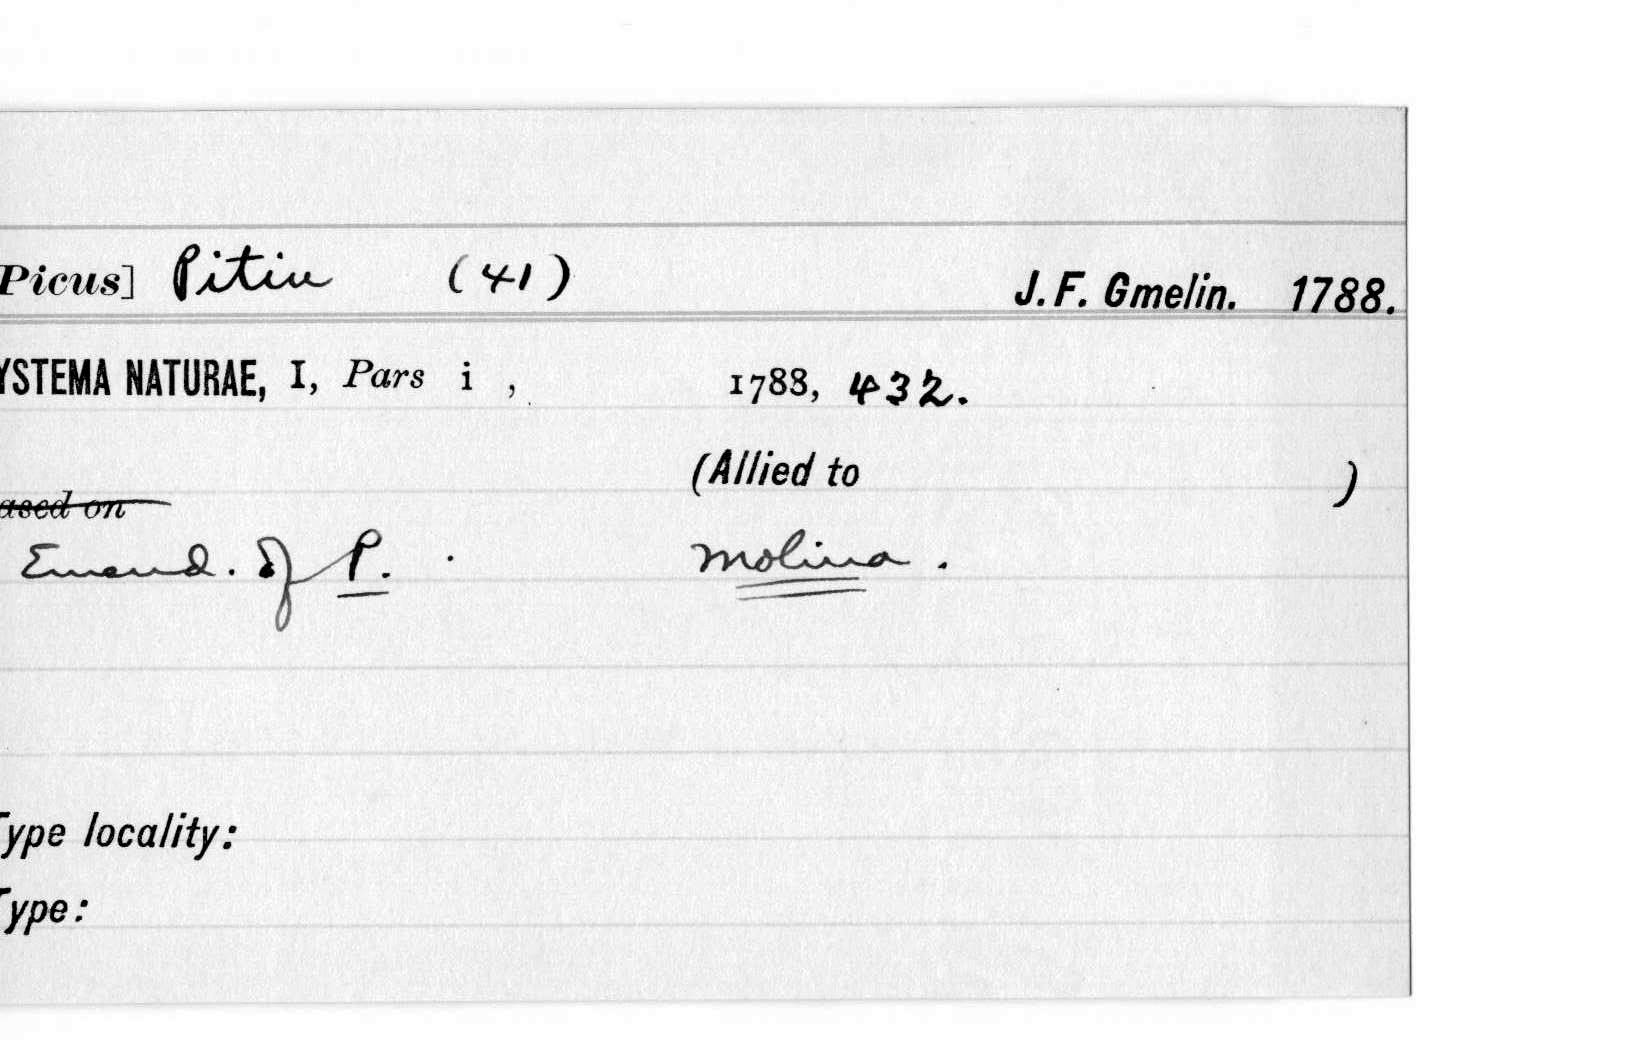 Picus] Pitiu (41) J. F. Gmelin. 1788.
YSTEMA NATURAE, I, Pars i , 1788, 432.
(Allied to )
ased on
Emend. of P. . Molina .
Type locality:
Type: